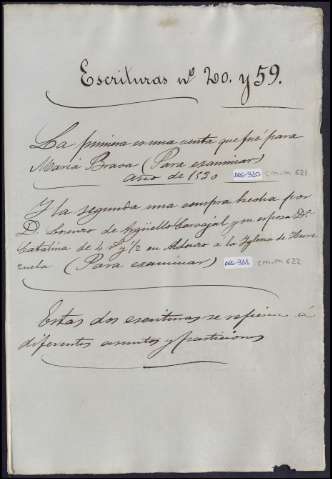 Escrituras nº 20. y 59.
La primera es una venta que fué para
María Brava (Para examinar)
año de 1530 DOC-310 C.M.M 621
Y la segunda una compra hecha por
D. Lorenzo de Argüello Carvajal y su esposa Dª
Catalina de 4 y 1/2 en a la Iglesia de
(Para examinar) DOC-311 C.M.M 622
Estas dos escrituras se refieren á
diferentes asuntos y particiones